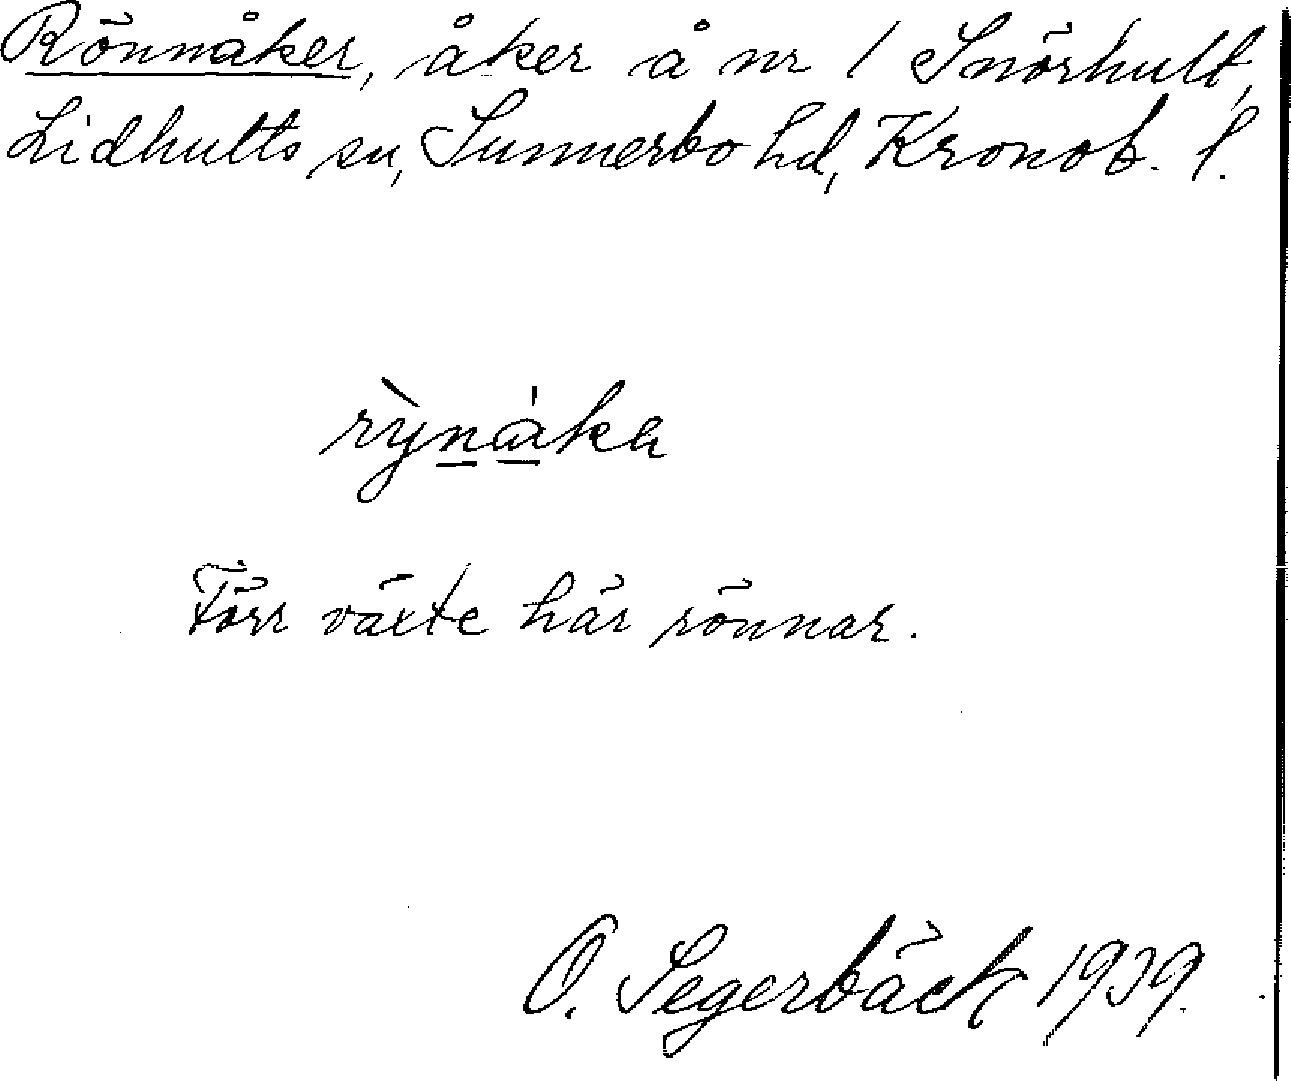 Rönnåker, åker å nr 1 Snörhult,
Lidhults sn, Sunnerbo hd, Kronob. l.
Förr växte här rönnar.
O. Segerbäck 1939.